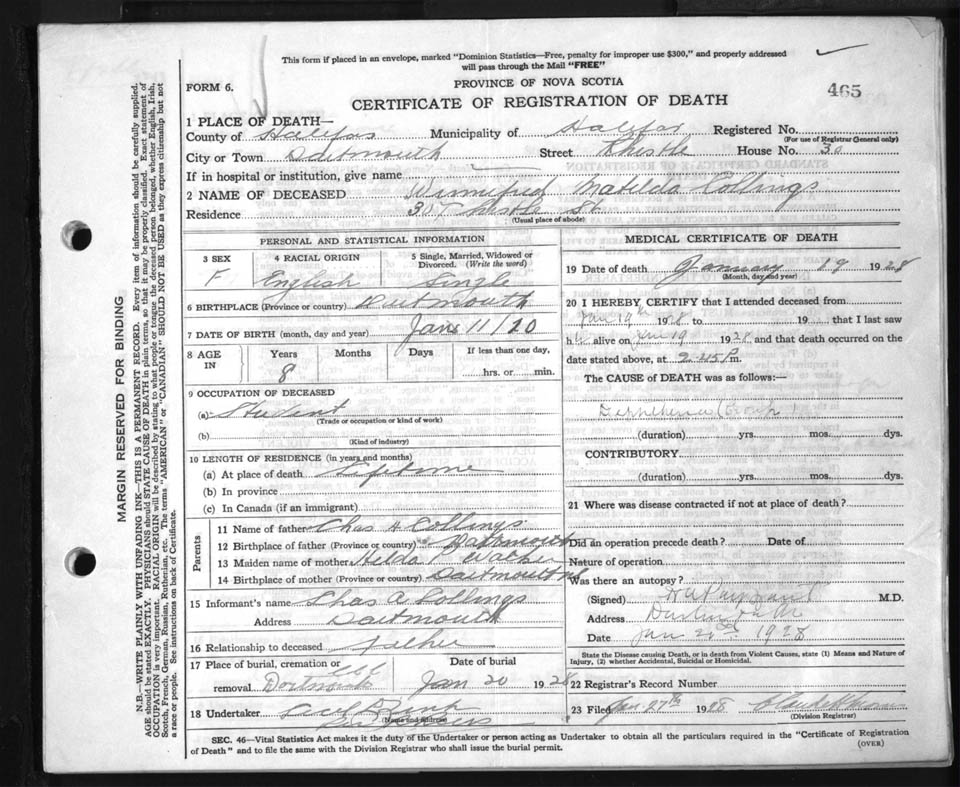 This form if placed in an envelope, marked "Dominion Statistics—Free, penalty for improper use $300," and properly addressed
will pass through the Mail "FREE"
FORM 6.
PROVINCE OF NOVA SCOTIA
465
CERTIFICATE OF REGISTRATION OF DEATH
1 PLACE OF DEATH—
County of Halifax Municipality of Halifax Registered No.
(For use of Registrar General only)
City or Town Dartmouth Street Thistle House No. 30
If in hospital or institution, give name
2 NAME OF DECEASED Winnifred Matilda Collings
Residence 30 Thistle St
(Usual place of abode)
PERSONAL AND STATISTICAL INFORMATION
3 SEX 4 RACIAL ORIGIN 5 Single, Married, Widowed or Divorced. (Write the word)
F English Single
6 BIRTHPLACE (Province or country) Dartmouth
7 DATE OF BIRTH (month, day and year) Jan 11/20
8 AGE IN Years Months Days If less than one day,
8 hrs. or min.
9 OCCUPATION OF DECEASED
(a) Student
(Trade or occupation or kind of work)
(b)
(Kind of industry)
10 LENGTH OF RESIDENCE (in years and months)
(a) At place of death Lifetime
(b) In province
(c) In Canada (if an immigrant)
Parents
11 Name of father Chas A Collings
12 Birthplace of father (Province or country) Dartmouth
13 Maiden name of mother Hilda
14 Birthplace of mother (Province or country) Dartmouth
15 Informant's name Chas A Collings
Address Dartmouth
16 Relationship to deceased Father
17 Place of burial, cremation or Date of burial
removal Dartmouth Jan 20 1928
18 Undertaker
(Name and address)
MEDICAL CERTIFICATE OF DEATH
19 Date of death January 19 1928
(Month, day and year)
20 I HEREBY CERTIFY that I attended deceased from
Jan 19th 1928 to 19 that I last saw
h alive on Jan 19 1928 and that death occurred on the
date stated above, at 2.45 P m.
The CAUSE of DEATH was as follows:—
(duration) yrs. mos. dys.
CONTRIBUTORY
(duration) yrs. mos. dys.
21 Where was disease contracted if not at place of death?
Did an operation precede death? Date of
Nature of operation
Was there an autopsy?
(Signed) M.D.
Address
Date Jan 1928
State the Disease causing Death, or in death from Violent Causes, state (1) Means and Nature of
Injury, (2) whether Accidental, Suicidal or Homicidal.
22 Registrar's Record Number
23 Filed Jan 27th 1928
(Division Registrar)
SEC. 46—Vital Statistics Act makes it the duty of the Undertaker or person acting as Undertaker to obtain all the particulars required in the "Certificate of Registration
of Death" and to file the same with the Division Registrar who shall issue the burial permit.
(OVER)
MARGIN RESERVED FOR BINDING
N.B.—WRITE PLAINLY WITH UNFADING INK—THIS IS A PERMANENT RECORD. Every item of information should be carefully supplied.
AGE should be stated EXACTLY. PHYSICIANS should STATE CAUSE OF DEATH in plain terms, so that it may be properly classified. Exact statement of
OCCUPATION is very important. RACIAL ORIGIN will be described by stating to what people or tongue the deceased person belonged, whether English, Irish,
Scotch, French, German, Russian, Ruthenian, etc. The terms "AMERICAN" or "CANADIAN" SHOULD NOT BE USED as they express citizenship but not
a race or people. See instructions on back of Certificate.